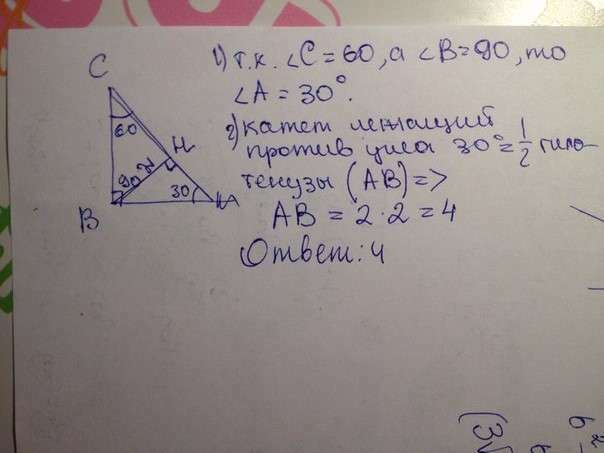 1) т.к. ∠C = 60, а ∠B = 90, то
∠A = 30°.
2) катет лежащий
против угла 30° = 1/2 гипо-
тенузы (AB) =>
AB = 2·2 = 4
Ответ: 4
C
60
H
2
90
30
A
B
6²
(3√